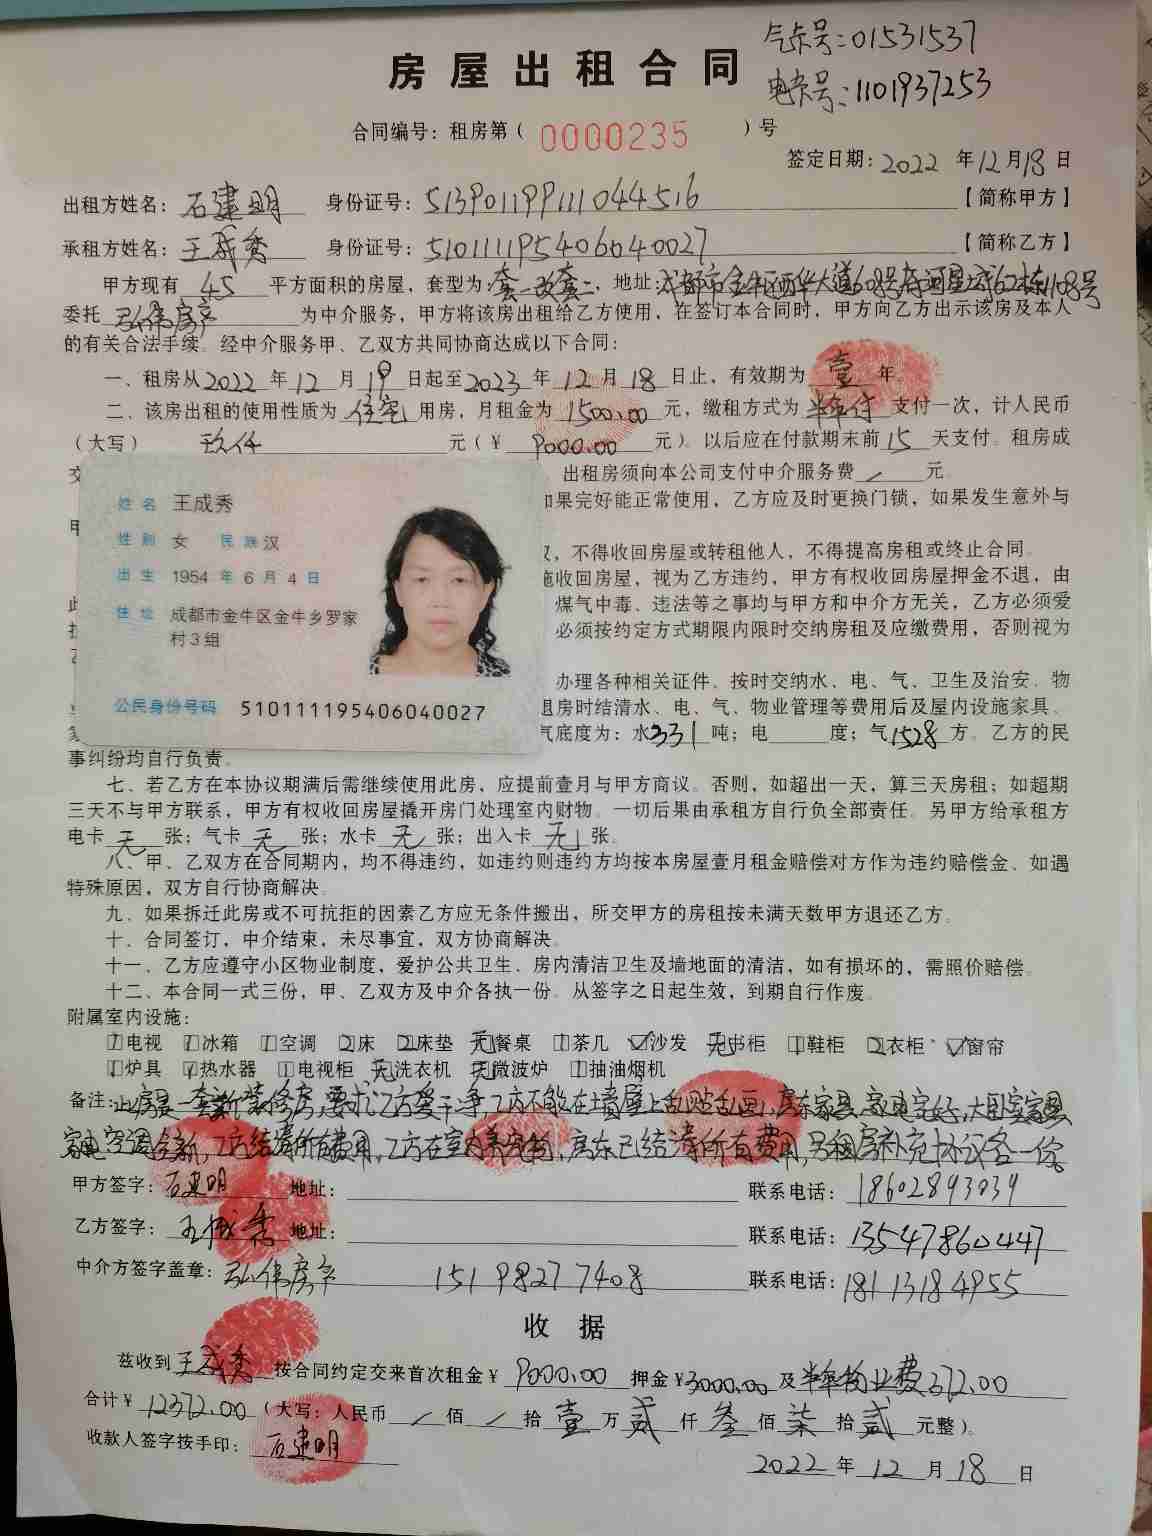 气卡号:01531537
房屋出租合同
电卡号:1101937253
合同编号：租房第（ 0000235 ）号
签定日期：2022 年12月18日
出租方姓名：石建明 身份证号：513901199111044516 【简称甲方】
承租方姓名：王成秀 身份证号：510111195406040027 【简称乙方】
甲方现有 45 平方面积的房屋，套型为：套一改套二，地址：成都市金牛区西华大道608号 62栋1108号
委托 弘伟房产 为中介服务，甲方将该房出租给乙方使用，在签订本合同时，甲方向乙方出示该房及本人
的有关合法手续。经中介服务甲、乙双方共同协商达成以下合同：
一、租房从2022 年 12 月 19 日起至2023 年 12 月 18 日止，有效期为 壹 年
二、该房出租的使用性质为 住宅 用房，月租金为 1500.00 元，缴租方式为 半年付 支付一次，计人民币
（大写） 玖仟 元（￥ 9000.00 元）。以后应在付款期末前 15 天支付。租房成
交 出租房须向本公司支付中介服务费 / 元。
如果完好能正常使用，乙方应及时更换门锁，如果发生意外与
甲
，不得收回房屋或转租他人，不得提高房租或终止合同。
施收回房屋，视为乙方违约，甲方有权收回房屋押金不退，由
此 煤气中毒、违法等之事均与甲方和中介方无关，乙方必须爱
必须按约定方式期限内限时交纳房租及应缴费用，否则视为
办理各种相关证件、按时交纳水、电、气、卫生及治安、物
退房时结清水、电、气、物业管理等费用后及屋内设施家具。
气底度为：水331吨；电 度；气1528方。乙方的民
事纠纷均自行负责。
姓名 王成秀
性别 女 民族 汉
出生 1954 年 6 月 4 日
住址 成都市金牛区金牛乡罗家
村3组
公民身份号码 510111195406040027
七、若乙方在本协议期满后需继续使用此房，应提前壹月与甲方商议。否则，如超出一天，算三天房租；如超期
三天不与甲方联系，甲方有权收回房屋撬开房门处理室内财物。一切后果由承租方自行负全部责任。另甲方给承租方
电卡 无 张；气卡 无 张；水卡 无 张；出入卡 无 张。
八、甲、乙双方在合同期内，均不得违约，如违约则违约方均按本房屋壹月租金赔偿对方作为违约赔偿金、如遇
特殊原因，双方自行协商解决。
九、如果拆迁此房或不可抗拒的因素乙方应无条件搬出，所交甲方的房租按未满天数甲方退还乙方。
十、合同签订，中介结束，未尽事宜，双方协商解决。
十一、乙方应遵守小区物业制度，爱护公共卫生、房内清洁卫生及墙地面的清洁，如有损坏的，需照价赔偿。
十二、本合同一式三份，甲、乙双方及中介各执一份。从签字之日起生效，到期自行作废。
附属室内设施：
1电视 1冰箱 1空调 2床 2床垫 无餐桌 1茶几 ✓沙发 无书柜 1鞋柜 2衣柜 ✓窗帘
1炉具 1热水器 1电视柜 无洗衣机 无微波炉 1抽油烟机
备注：此房是一套新装修房，要求乙方爱干净，乙方不能在墙壁上乱贴乱画，房东家具家电完好，大卧室家具
家电空调全新，乙方结清所有费用，乙方在室内养宠物，房东已结清所有费用，另租房补充协议各一份。
甲方签字：石建明 地址： 联系电话：18602893039
乙方签字：王成秀 地址： 联系电话：13547860447
中介方签字盖章：弘伟房产 15198277408 联系电话：18113184955
收据
兹收到 王成秀 按合同约定交来首次租金￥ 9000.00 押金￥3000.00 及半年物业费372.00
合计￥ 12372.00 （大写：人民币 / 佰 / 拾 壹 万 贰 仟 叁 佰 柒 拾 贰 元整）。
收款人签字按手印：石建明
2022 年 12 月 18 日